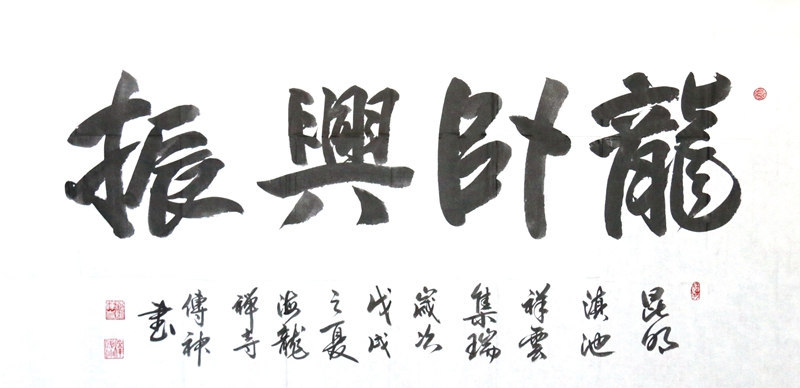 龍卧興振
昆明
滇池
祥雲
集瑞
歲次
戊戌
之夏
海龍
禪寺
傳神
書